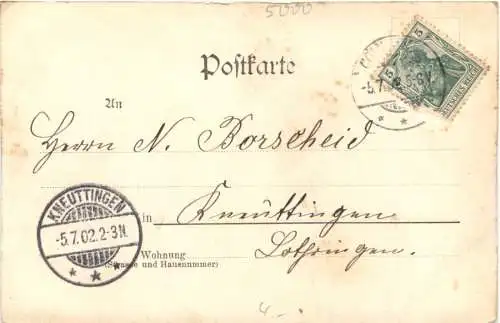 5000
Postkarte
5
5
DEUTSCHES REICH
-5.7.
An
Herrn N. Borscheid
KNEUTTINGEN
-5.7.02.2-3N.
in Kneuttingen
Lothringen.
Wohnung
(Strasse und Hausnummer)
4.-